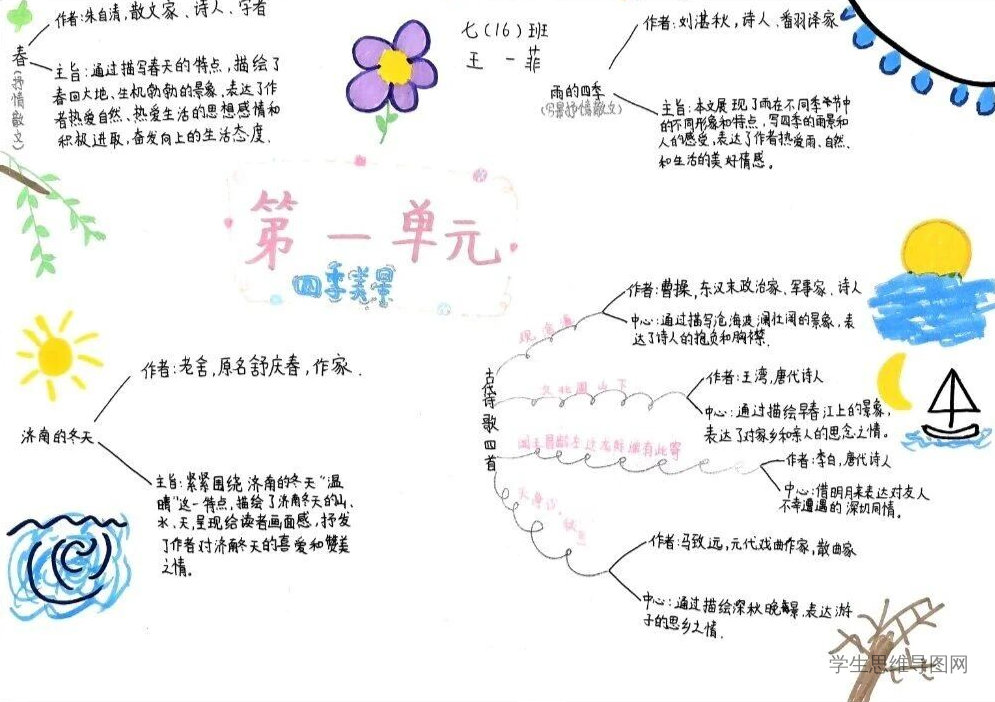 作者:朱自清,散文家、诗人、学者
春(抒情散文)
主旨:通过描写春天的特点,描绘了
春回大地、生机勃勃的景象,表达了作
者热爱自然、热爱生活的思想感情和
积极进取,奋发向上的生活态度.
七(16)班
王一菲
作者:刘湛秋,诗人、翻译家
雨的四季
(写景抒情散文)
主旨:本文展现了雨在不同季节中
的不同形象和特点,写四季的雨景和
人的感受,表达了作者热爱雨、自然、
和生活的美好情感。
第一单元
四季美景
作者:老舍,原名舒庆春,作家.
济南的冬天
主旨:紧紧围绕济南的冬天"温
晴"这一特点,描绘了济南冬天的山、
水、天,呈现给读者画面感,抒发
了作者对济南冬天的喜爱和赞美
之情。
古代诗歌四首
观沧海
作者:曹操,东汉末政治家、军事家、诗人
中心:通过描写沧海波澜壮阔的景象,表
达了诗人的抱负和胸襟.
次北固山下
作者:王湾,唐代诗人
中心:通过描绘早春江上的景象,
表达了对家乡和亲人的思念之情。
闻王昌龄左迁龙标遥有此寄
作者:李白,唐代诗人
中心:借明月来表达对友人
不幸遭遇的深切同情。
天净沙·秋思
作者:马致远,元代戏曲作家,散曲家
中心:通过描绘深秋晚景,表达游
子的思乡之情.
学生思维导图网